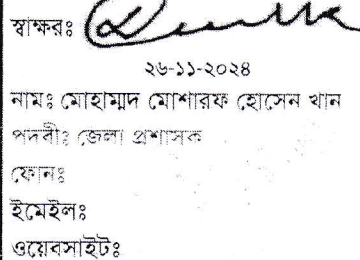 স্বাক্ষরঃ
২৬-১১-২০২৪
নামঃ মোহাম্মদ মোশারফ হোসেন খান
পদবীঃ জেলা প্রশাসক
ফোনঃ
ইমেইলঃ
ওয়েবসাইটঃ